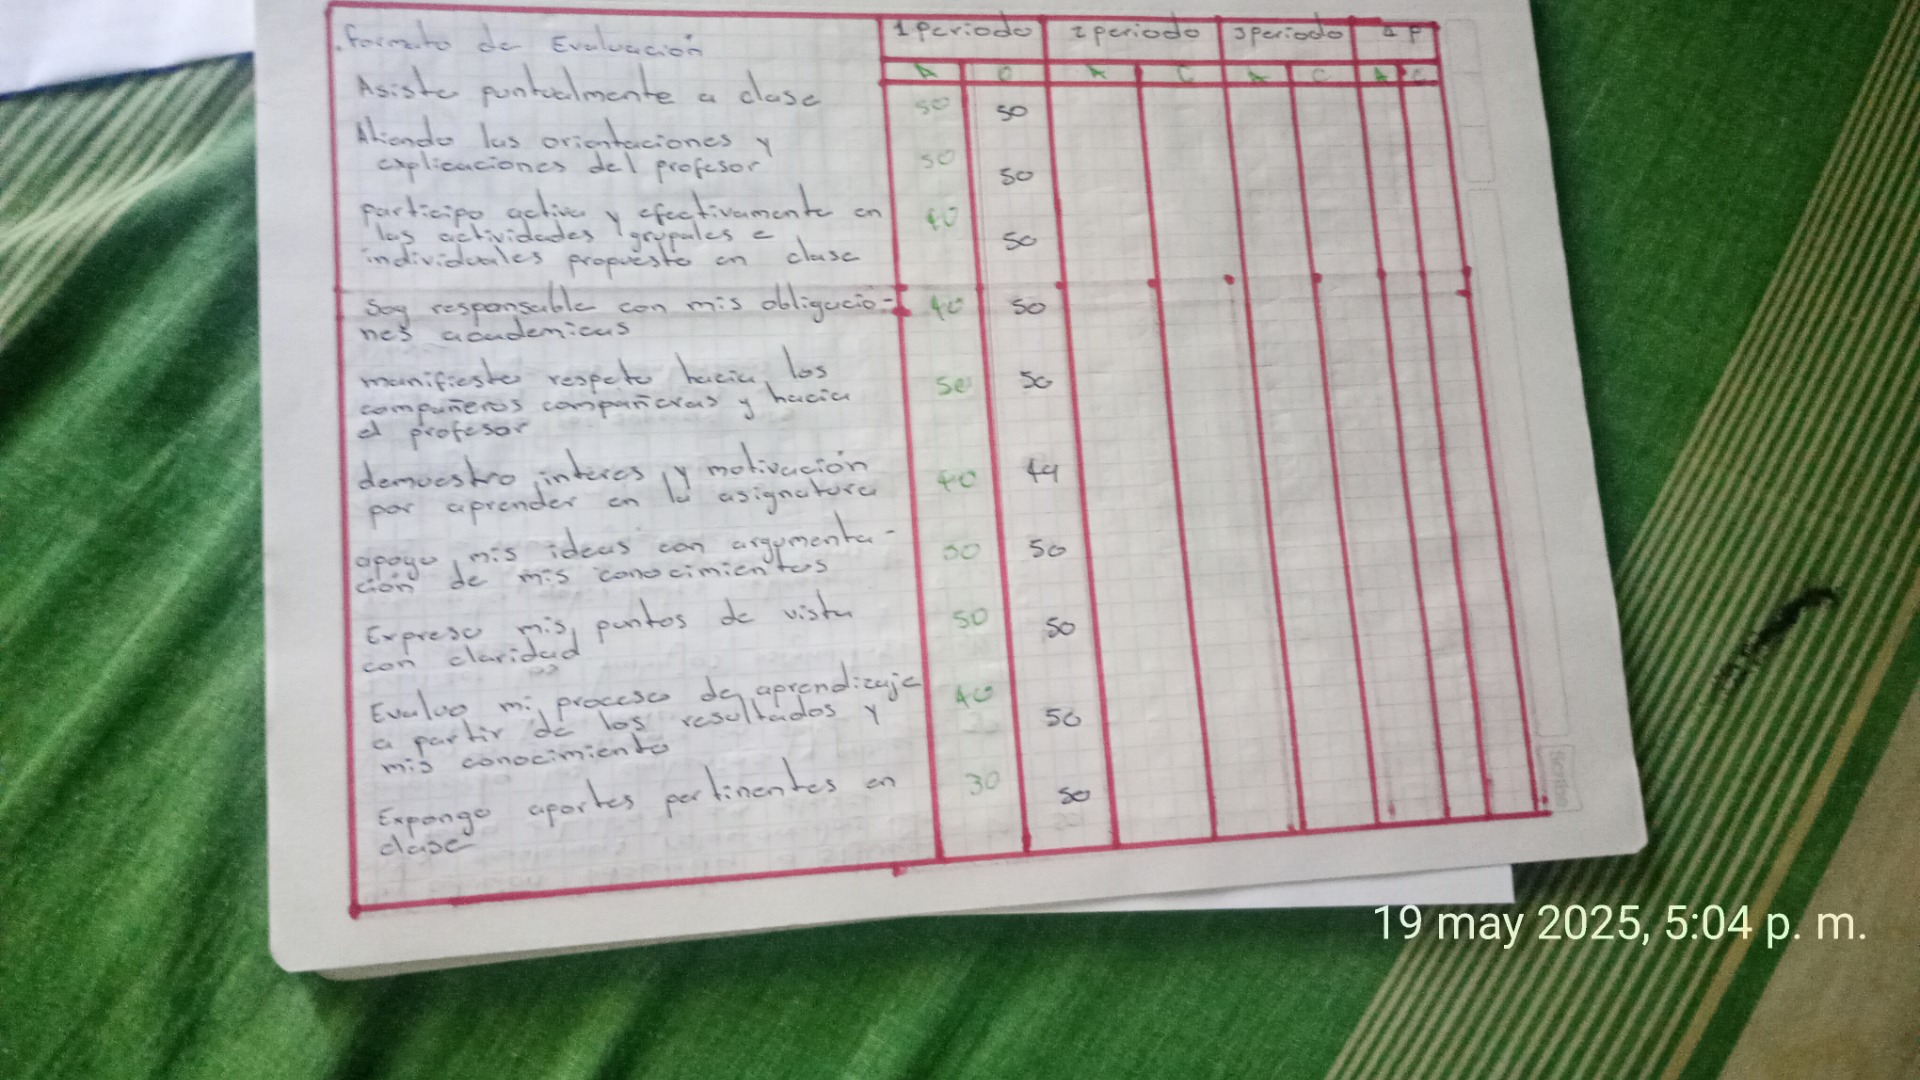 Formato de Evaluación 1 Periodo 2 periodo 3 periodo 4 P
A C A C A C A C
Asisto puntualmente a clase 50 50
Atiendo las orientaciones y
explicaciones del profesor 50 50
participo activa y efectivamente en
las actividades grupales e
individuales propuesto en clase 40 50
Soy responsable con mis obligacio-
nes academicas 40 50
manifiesto respeto hacia los
compañeros compañeras y hacia
el profesor 50 50
demuestro interes y motivación
por aprender en la asignatura 40 44
apoyo mis ideas con argumenta-
ción de mis conocimientos 50 50
Expreso mis puntos de vista
con claridad 50 50
Evaluo mi proceso de aprendizaje
a partir de los resultados y
mis conocimiento 40 50
Expongo aportes pertinentes en
clase 30 50
19 may 2025, 5:04 p. m.